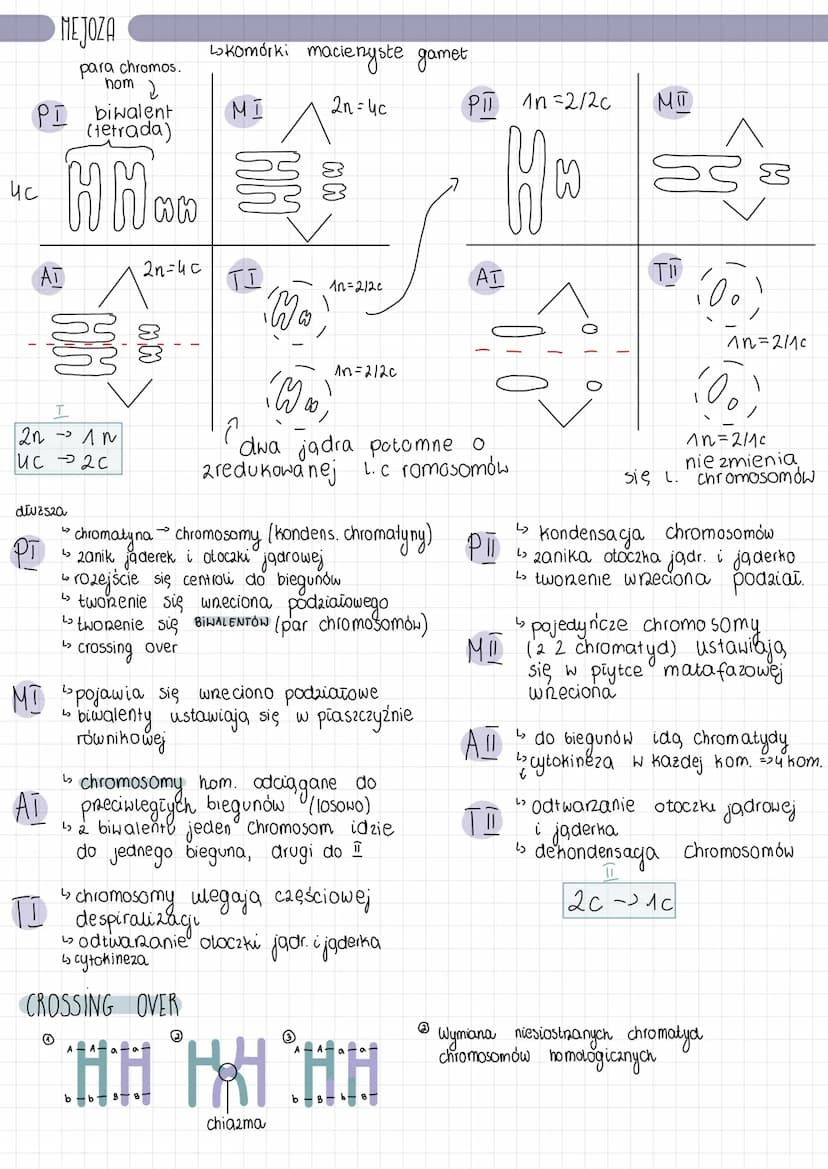 MEJOZA
↳komórki macierzyste gamet
para chromos.
hom
PI
biwalent
(tetrada)
4c
MI
2n=4c
PII
1n=2/2c
MII
AI
2n=4c
TI
1n=2/2c
1n=2/2c
AI
TII
1n=2/1c
1n=2/1c
nie zmienia
się l. chromosomów
I
2n → 1n
4c → 2c
dwa jądra potomne o
zredukowanej l. c romosomów
dłuższa
PI
↳ chromatyna → chromosomy (kondens. chromatyny)
↳ zanik jąderek i otoczki jądrowej
↳ rozejście się centroli do biegunów
↳ tworzenie się wrzeciona podziałowego
↳ tworzenie się BIWALENTÓW (par chromosomów)
↳ crossing over
MI
↳ pojawia się wrzeciono podziałowe
↳ biwalenty ustawiają się w płaszczyźnie
równikowej
AI
↳ chromosomy hom. odciągane do
przeciwległych biegunów (losowo)
↳ z biwalentu jeden chromosom idzie
do jednego bieguna, drugi do II
TI
↳ chromosomy ulegają częściowej
despiralizacji
↳ odtwarzanie otoczki jądr. i jąderka
↳ cytokineza
PII
↳ kondensacja chromosomów
↳ zanika otoczka jądr. i jąderko
↳ tworzenie wrzeciona podział.
MII
↳ pojedyńcze chromosomy
(z 2 chromatyd) ustawiają
się w płytce matafazowej
wrzeciona
AII
↳ do biegunów idą chromatydy
↳ cytokineza w każdej kom. => 4 kom.
TII
↳ odtwarzanie otoczki jądrowej
i jąderka
↳ dekondensacja chromosomów
II
2c → 1c
CROSSING OVER
① A A a a
b b B B
②
chiazma
③ A A a a
b B b B
② Wymiana niesiostrzanych chromatyd
chromosomów homologicznych